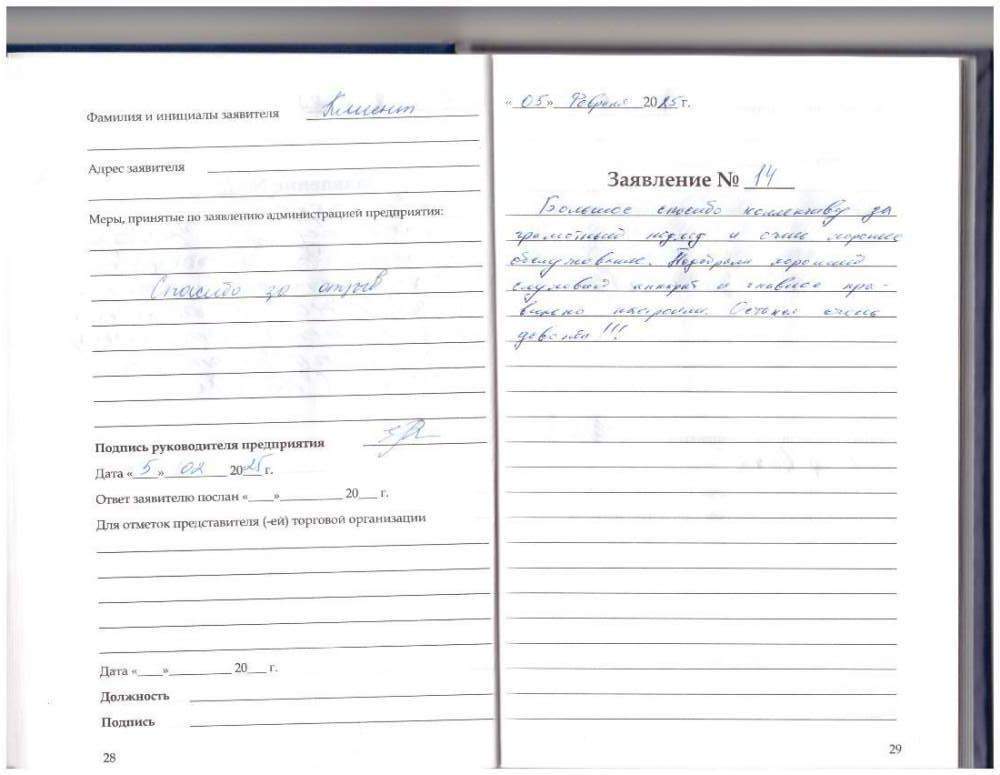 Фамилия и инициалы заявителя Клиент
Адрес заявителя
Меры, принятые по заявлению администрацией предприятия:
Спасибо за отзыв
Подпись руководителя предприятия
Дата «5» 02 2025 г.
Ответ заявителю послан «____»__________ 20___ г.
Для отметок представителя (-ей) торговой организации
Дата «____»__________ 20___ г.
Должность
Подпись
28
«05» Февраля 2025 г.
Заявление № 14
Большое спасибо коллективу за
грамотный подход и очень хорошее
обслуживание. Подобрали хороший
слуховой аппарат и главное пра-
вильно настроили. Остался очень
доволен!!!
29